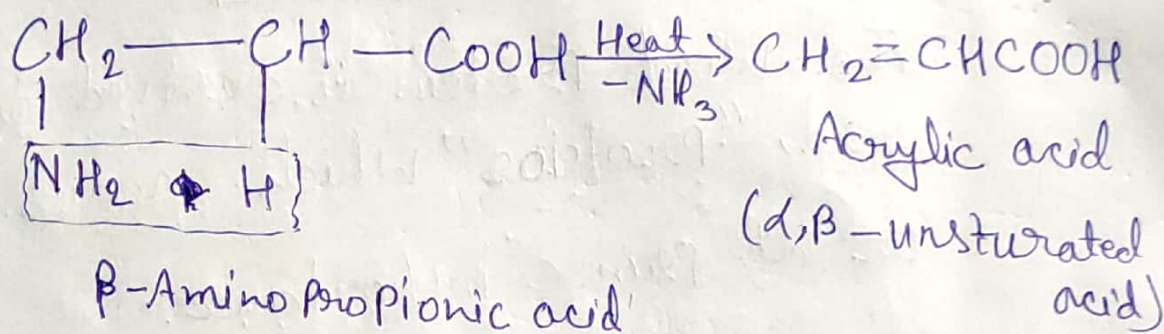 CH2—CH—COOH Heat→ CH2=CHCOOH
-NH3
NH2 H
Acrylic acid
(α,β-unsturated
acid)
β-Amino Propionic acid